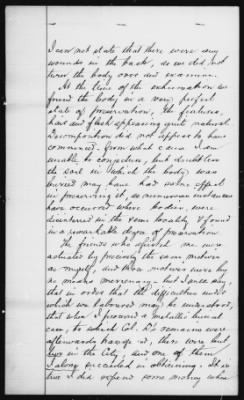 I can not state that there were any
wounds in the back, as we did not
turn the body over and examine.
At the time of the exhumation we
found the body in a very perfect
state of preservation, the features,
hair and flesh appearing quite natural.
Decomposition did not appear to have
commenced. From what cause I am
unable to conjecture, but doubtless
the soil in which the body was
buried may have had some effect
in preserving it, as numerous instances
have occurred where bodies were
disinterred in the same locality & found
in a remarkable degree of preservation
The friends who assisted me were
actuated by precisely the same motives
as myself, and those motives were by
no means mercenary. But I will say
that in order that the difficulties under
which we laboured may be understood,
that when I procured a metallic burial
case, to which Col. D's remains were
afterwards transferred, there were but
two in the City, and one of them
I alone succeeded in obtaining. It is
true I did expend some money when